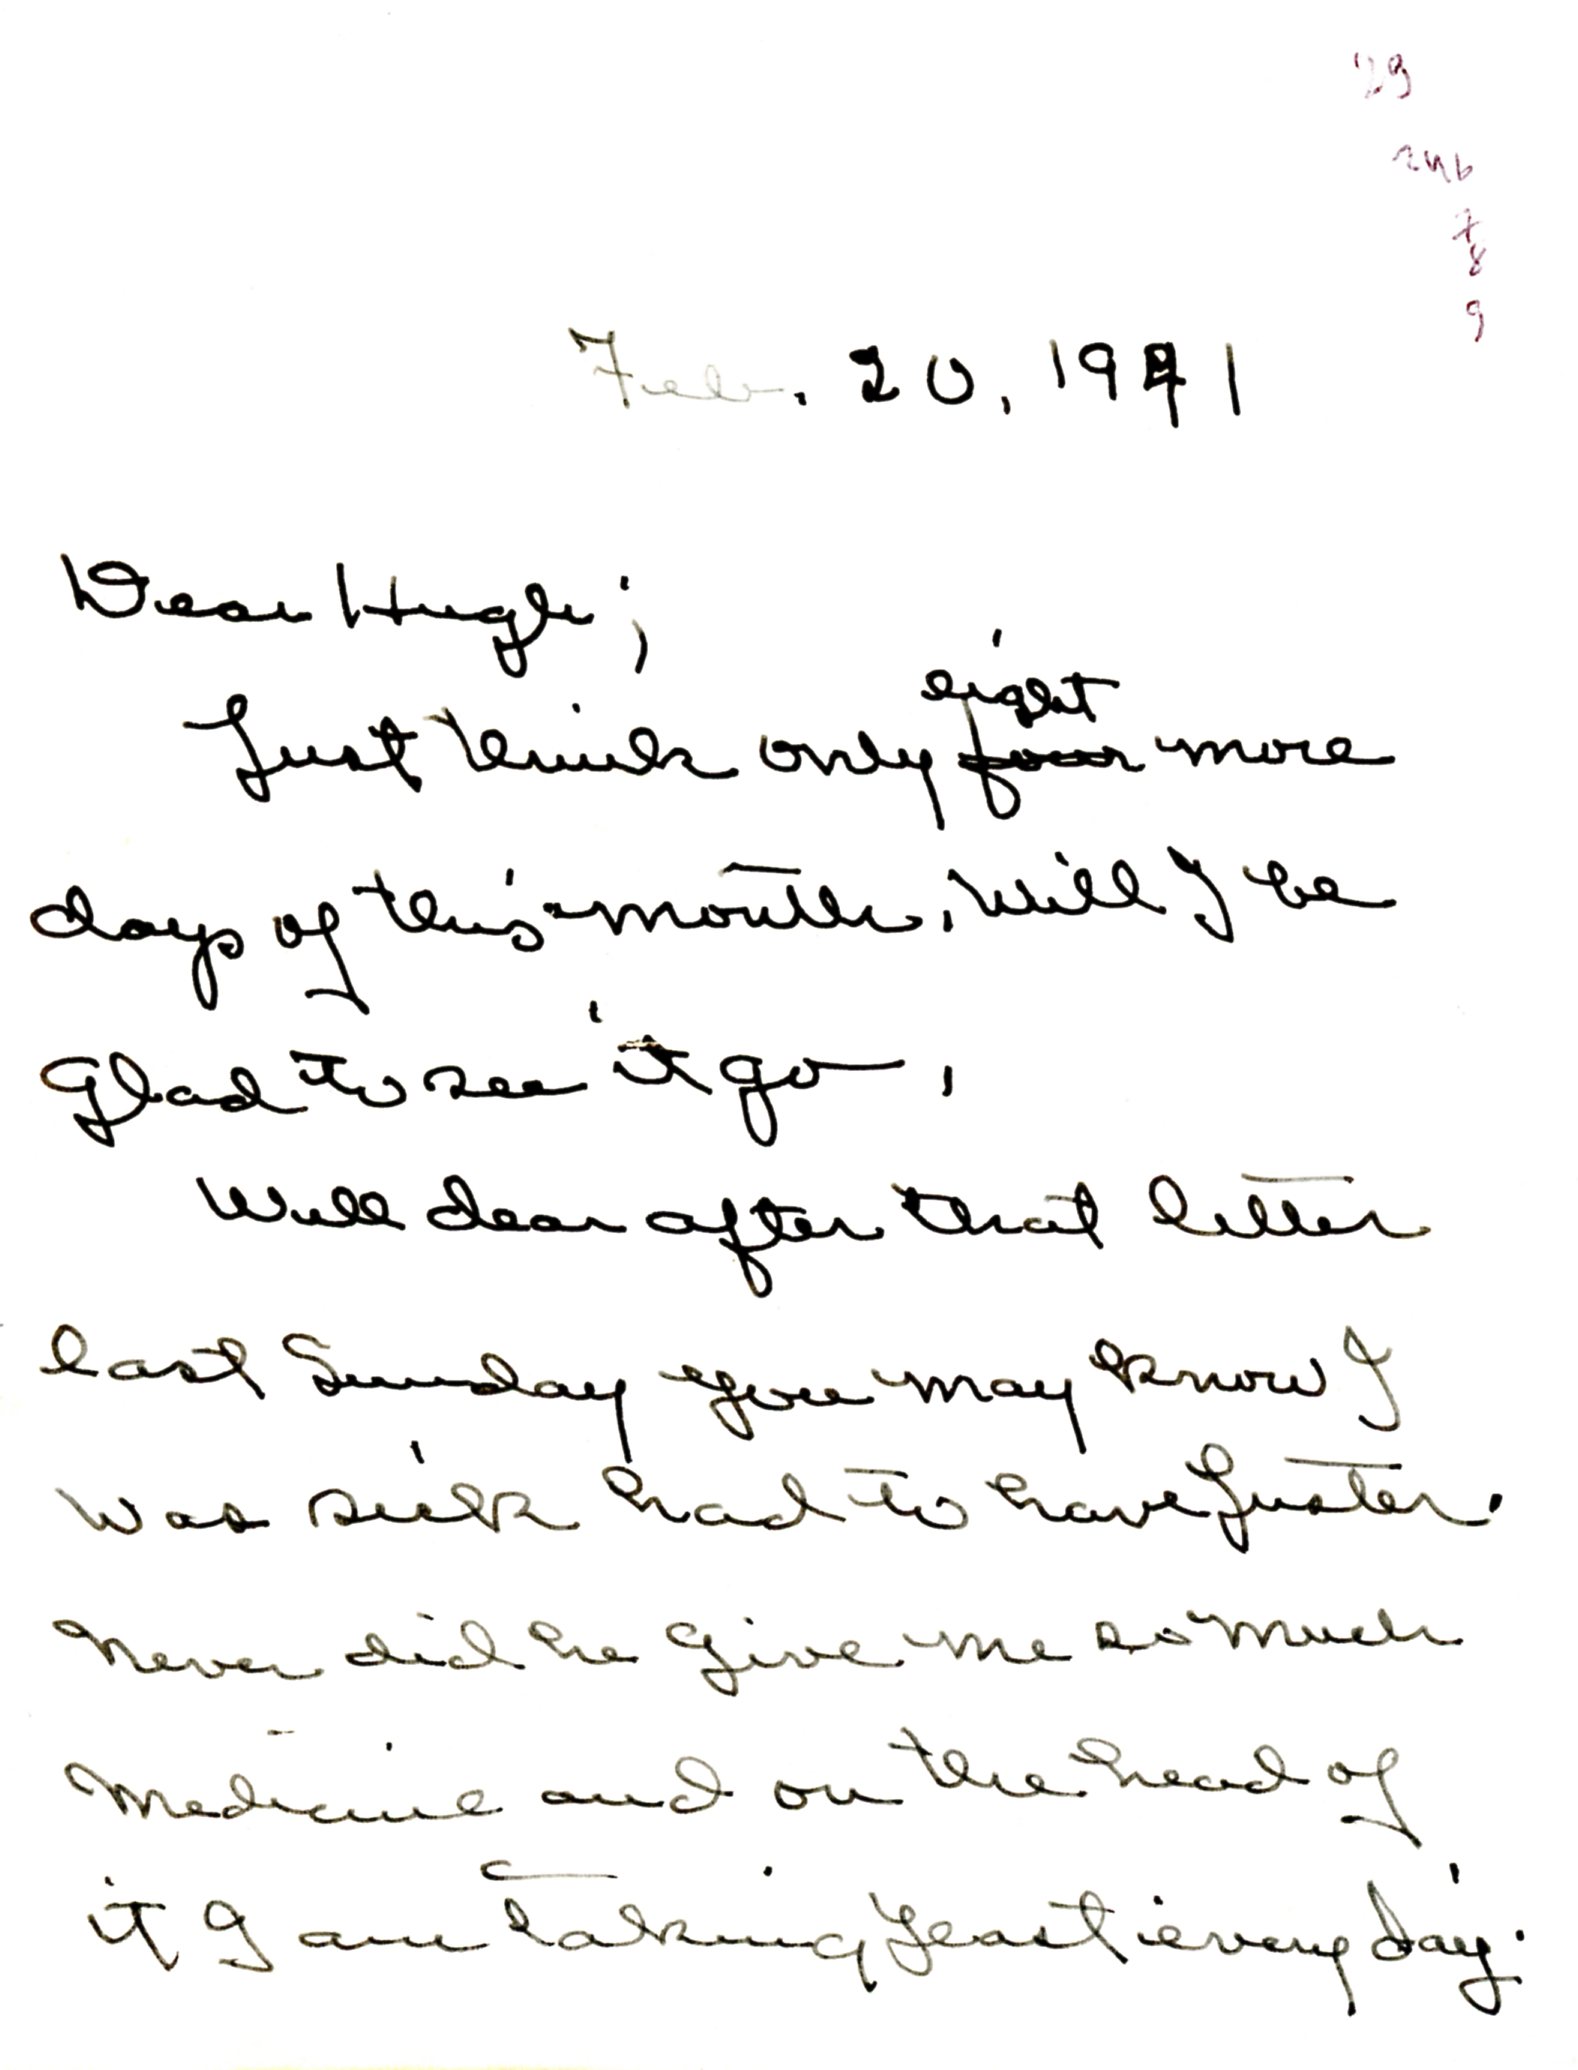 '29
246
7
8
9
Feb. 20, 1941
Dear Hugh;
eight
Just think only four more
days of this month. Will I be
glad to see it go.
Well dear after that letter
last Sunday you may know I
was sick had to have Juster.
Never did he give me so much
Medicine and on the head of
it I am taking Yeast every day.